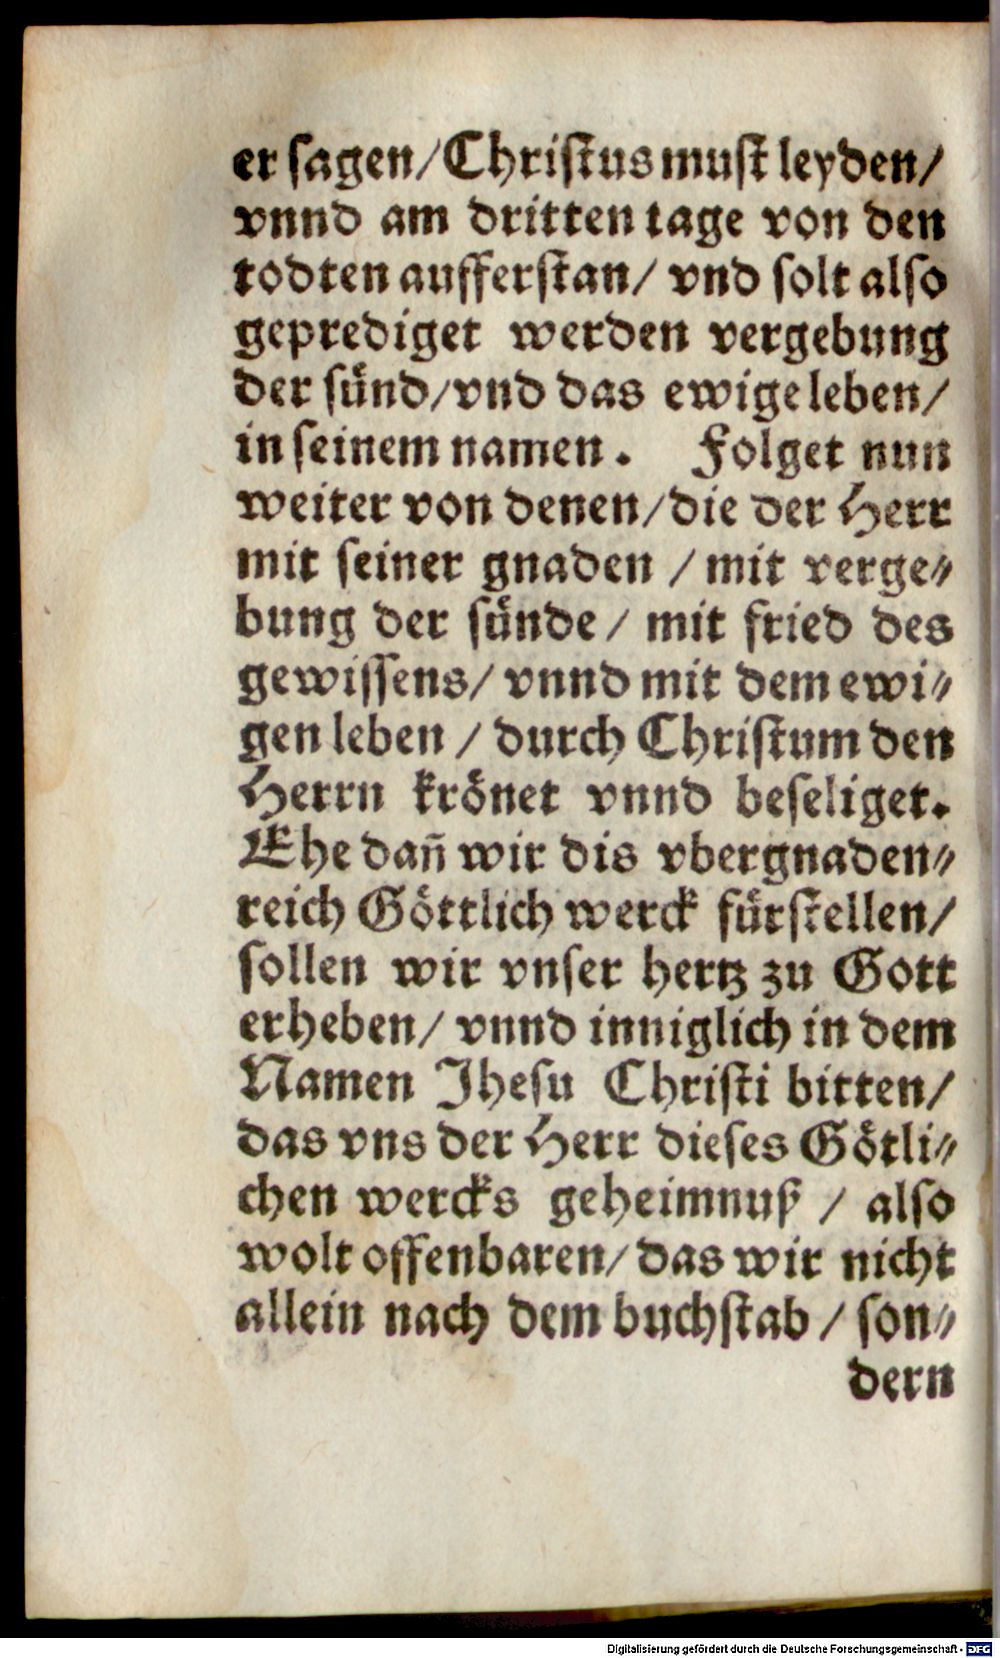 er sagen/Christus must leyden/
vnnd am dritten tage von den
todten aufferstan/ vnd solt also
geprediget werden vergebung
der sünd/vnd das ewige leben/
in seinem namen. Folget nun
weiter von denen/die der Herr
mit seiner gnaden / mit verge⸗
bung der sünde/ mit fried des
gewissens/ vnnd mit dem ewi⸗
gen leben / durch Christum den
Herrn krönet vnnd beseliget.
Ehe dañ wir dis vbergnaden⸗
reich Göttlich werck fürstellen/
sollen wir vnser hertz zu Gott
erheben/ vnnd inniglich in dem
Namen Jhesu Christi bitten/
das vns der Herr dieses Götli⸗
chen wercks geheimnuß / also
wolt offenbaren/das wir nicht
allein nach dem buchstab / son⸗
dern
Digitalisierung gefördert durch die Deutsche Forschungsgemeinschaft - DFG